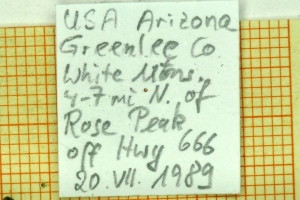 USA Arizona
Greenlee Co
White Mtns.
4-7 mi N. of
Rose Peak
off Hwy 666
20. VII. 1989